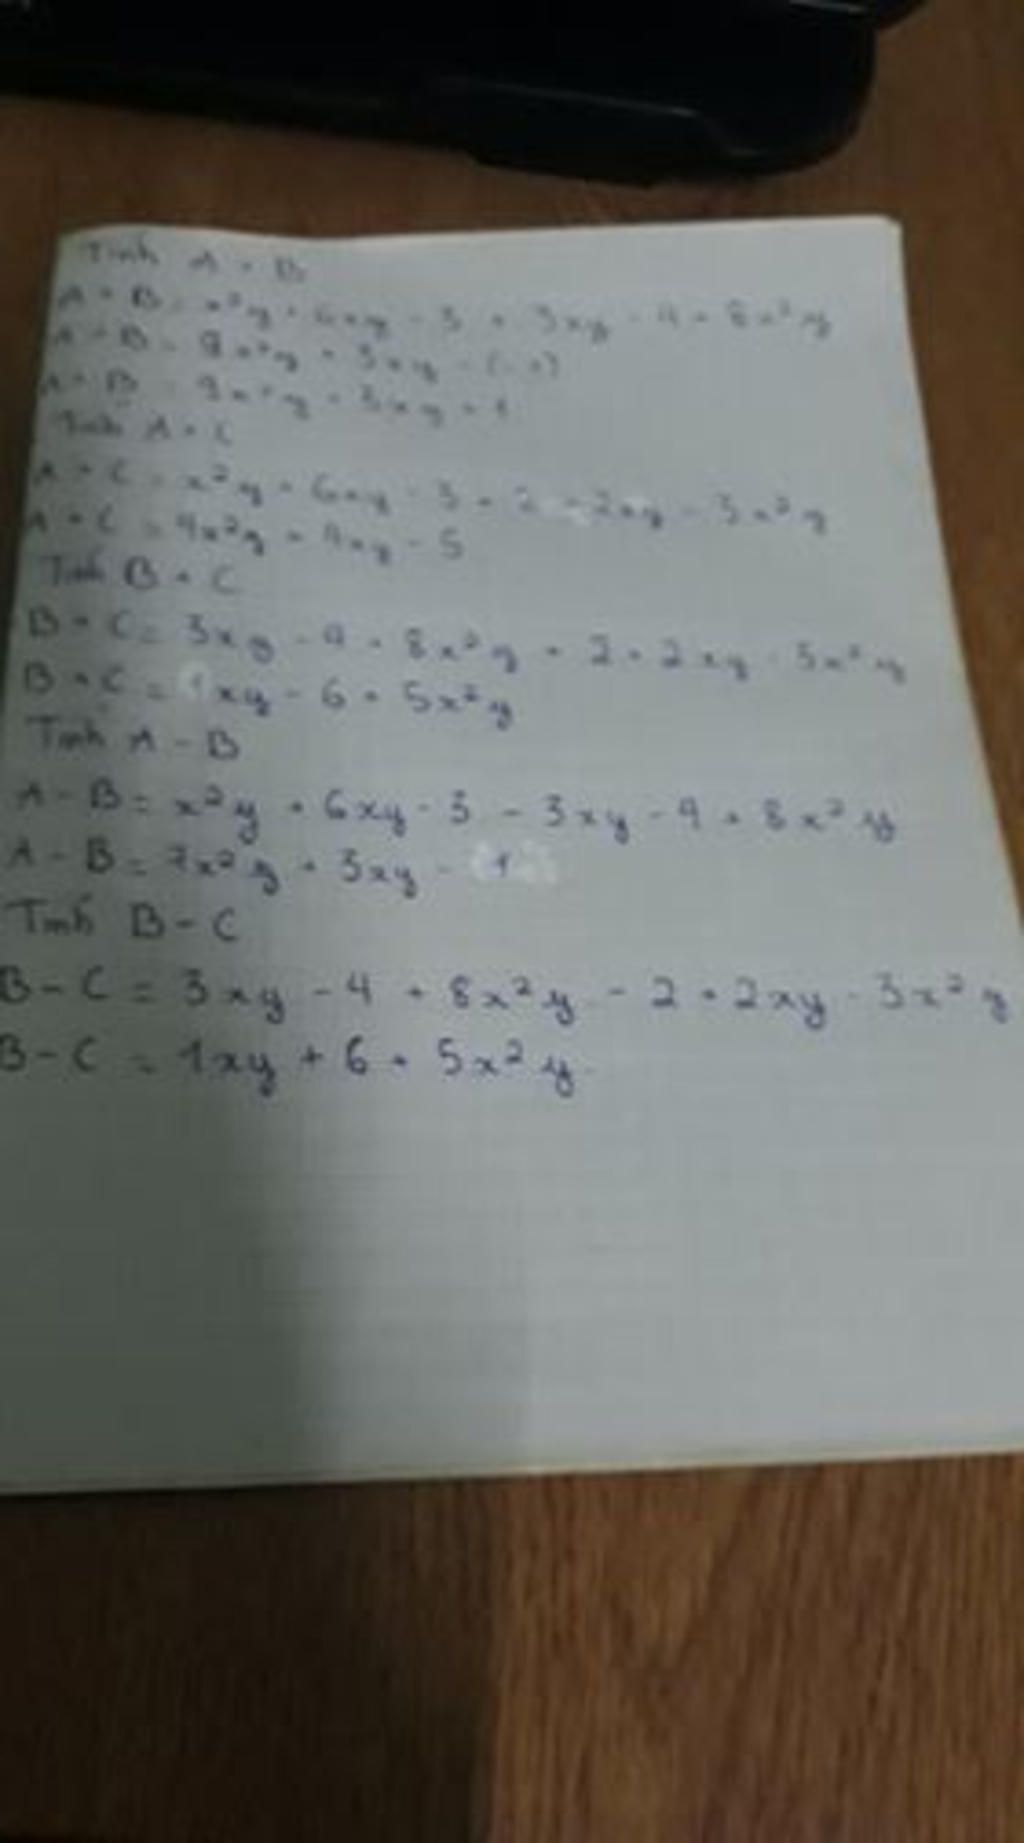 Tính A + B
A + B = x²y + 6xy - 3 + 3xy - 4 + 8x²y
A + B = 9x²y + 3xy -
A + B = 9x²y + 3xy + 1
Tính A + C
A + C = x²y + 6xy - 3 + 2 + 2xy - 3x²y
A + C = 4x²y + 4xy - 5
Tính B + C
B + C = 3xy - 4 + 8x²y + 2 + 2xy - 3x²y
B + C = 1xy - 6 + 5x²y
Tính A - B
A - B = x²y + 6xy - 3 - 3xy - 4 + 8x²y
A - B = 7x²y + 3xy - 1
Tính B - C
B - C = 3xy - 4 + 8x²y - 2 + 2xy - 3x²y
B - C = 1xy + 6 + 5x²y